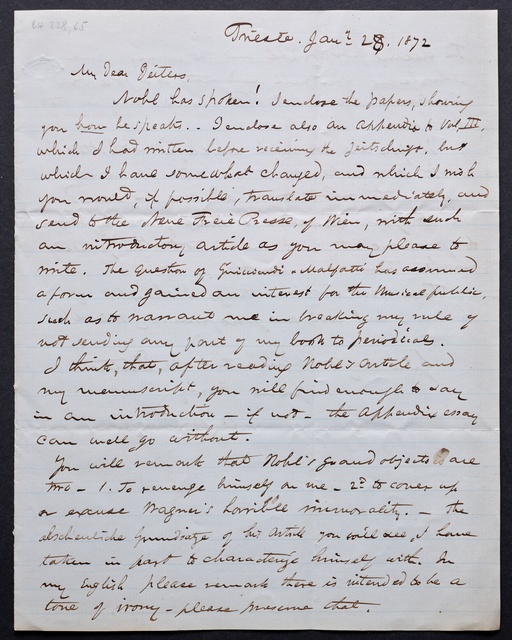 Trieste. Jany. 28, 1872
My Dear Deiters,
Nohl has spoken! I enclose the papers, showing
you how he speaks.. I enclose also an appendix to Vol. III,
which I had written before receiving the Zeitschrift, but
which I have somewhat changed, and which I wish
you would, if possible, translate immediately, and
send to the Neue Freie Presse, of Wien, with such
an introductory article as you may please to
write. The question of Guicciardi & Malfatti has assumed
a form and gained an interest for the Musical public,
such as to warrant me in breaking my rule of
not sending any part of my book to periodicals.
I think, that, after reading Nohl's article and
my manuscript, you will find enough to say
in an introduction – if not – the appendix essay
can well go without.
You will remark that Nohl's grand objects are
two – 1. To revenge himself on me – 2d to cover up
or excuse Wagner's horrible immorality. – the
abscheuliche Grundsätze of his Article you will see, I have
taken in part to characterize himself with. In
my English please remark there is intended to be a
tone of irony – please preserve that.